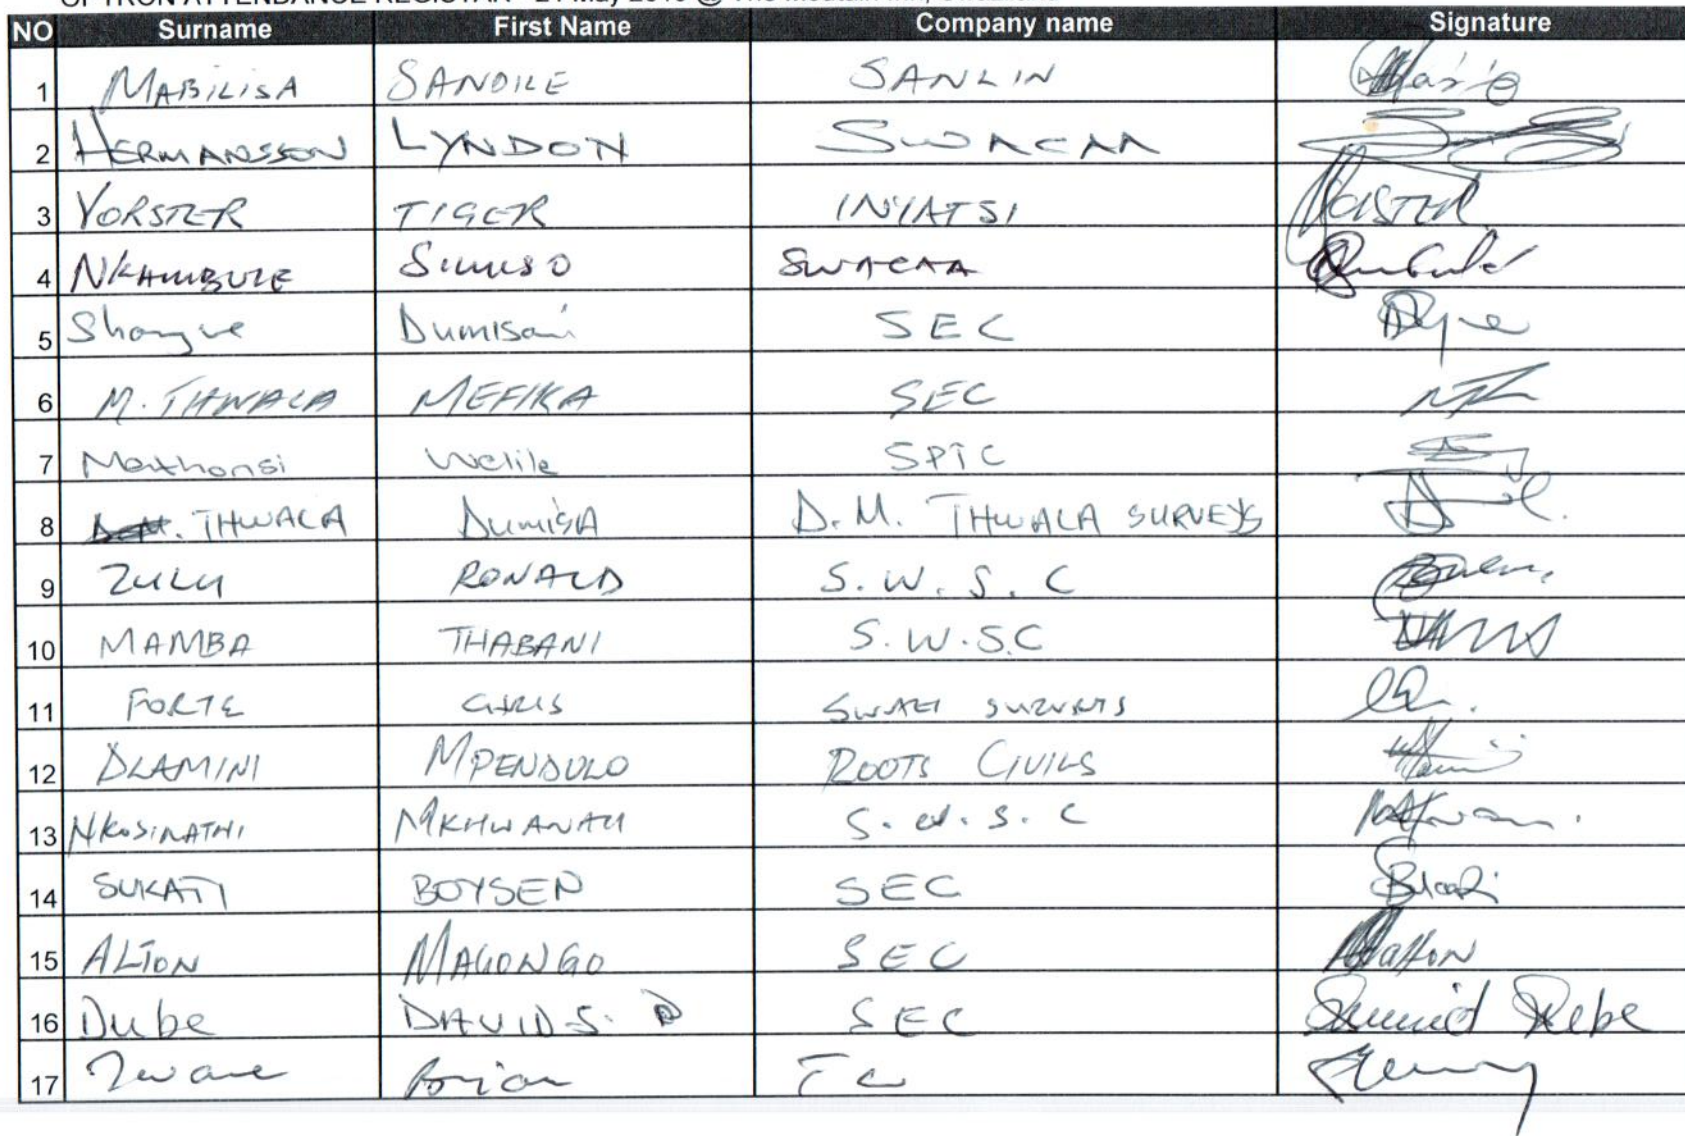 NO Surname First Name Company name Signature
1 MABILISA SANDILE SANLIN
2 HERMANSSON LYNDON SWACAA
3 VORSTER TIGER INYATSI
4 NKHAMBULE SIMISO SWACAA
5 Shongwe Dumisani SEC
6 M. THWALA MEFIKA SEC
7 Mathonsi Welile SPTC
8 THWALA DUMISA D.M. THWALA SURVEYS
9 ZULU RONALD S.W.S.C
10 MAMBA THABANI S.W.S.C
11 FORTE SWAZI SURVEYS
12 DLAMINI MPENDULO ROOTS CIVILS
13 NKOSINATHI MKHWANAZI S.W.S.C
14 SUKATI BOYSEN SEC
15 ALTON MAGONGO SEC
16 Dube DAVID S. D SEC
17 Zwane Brian